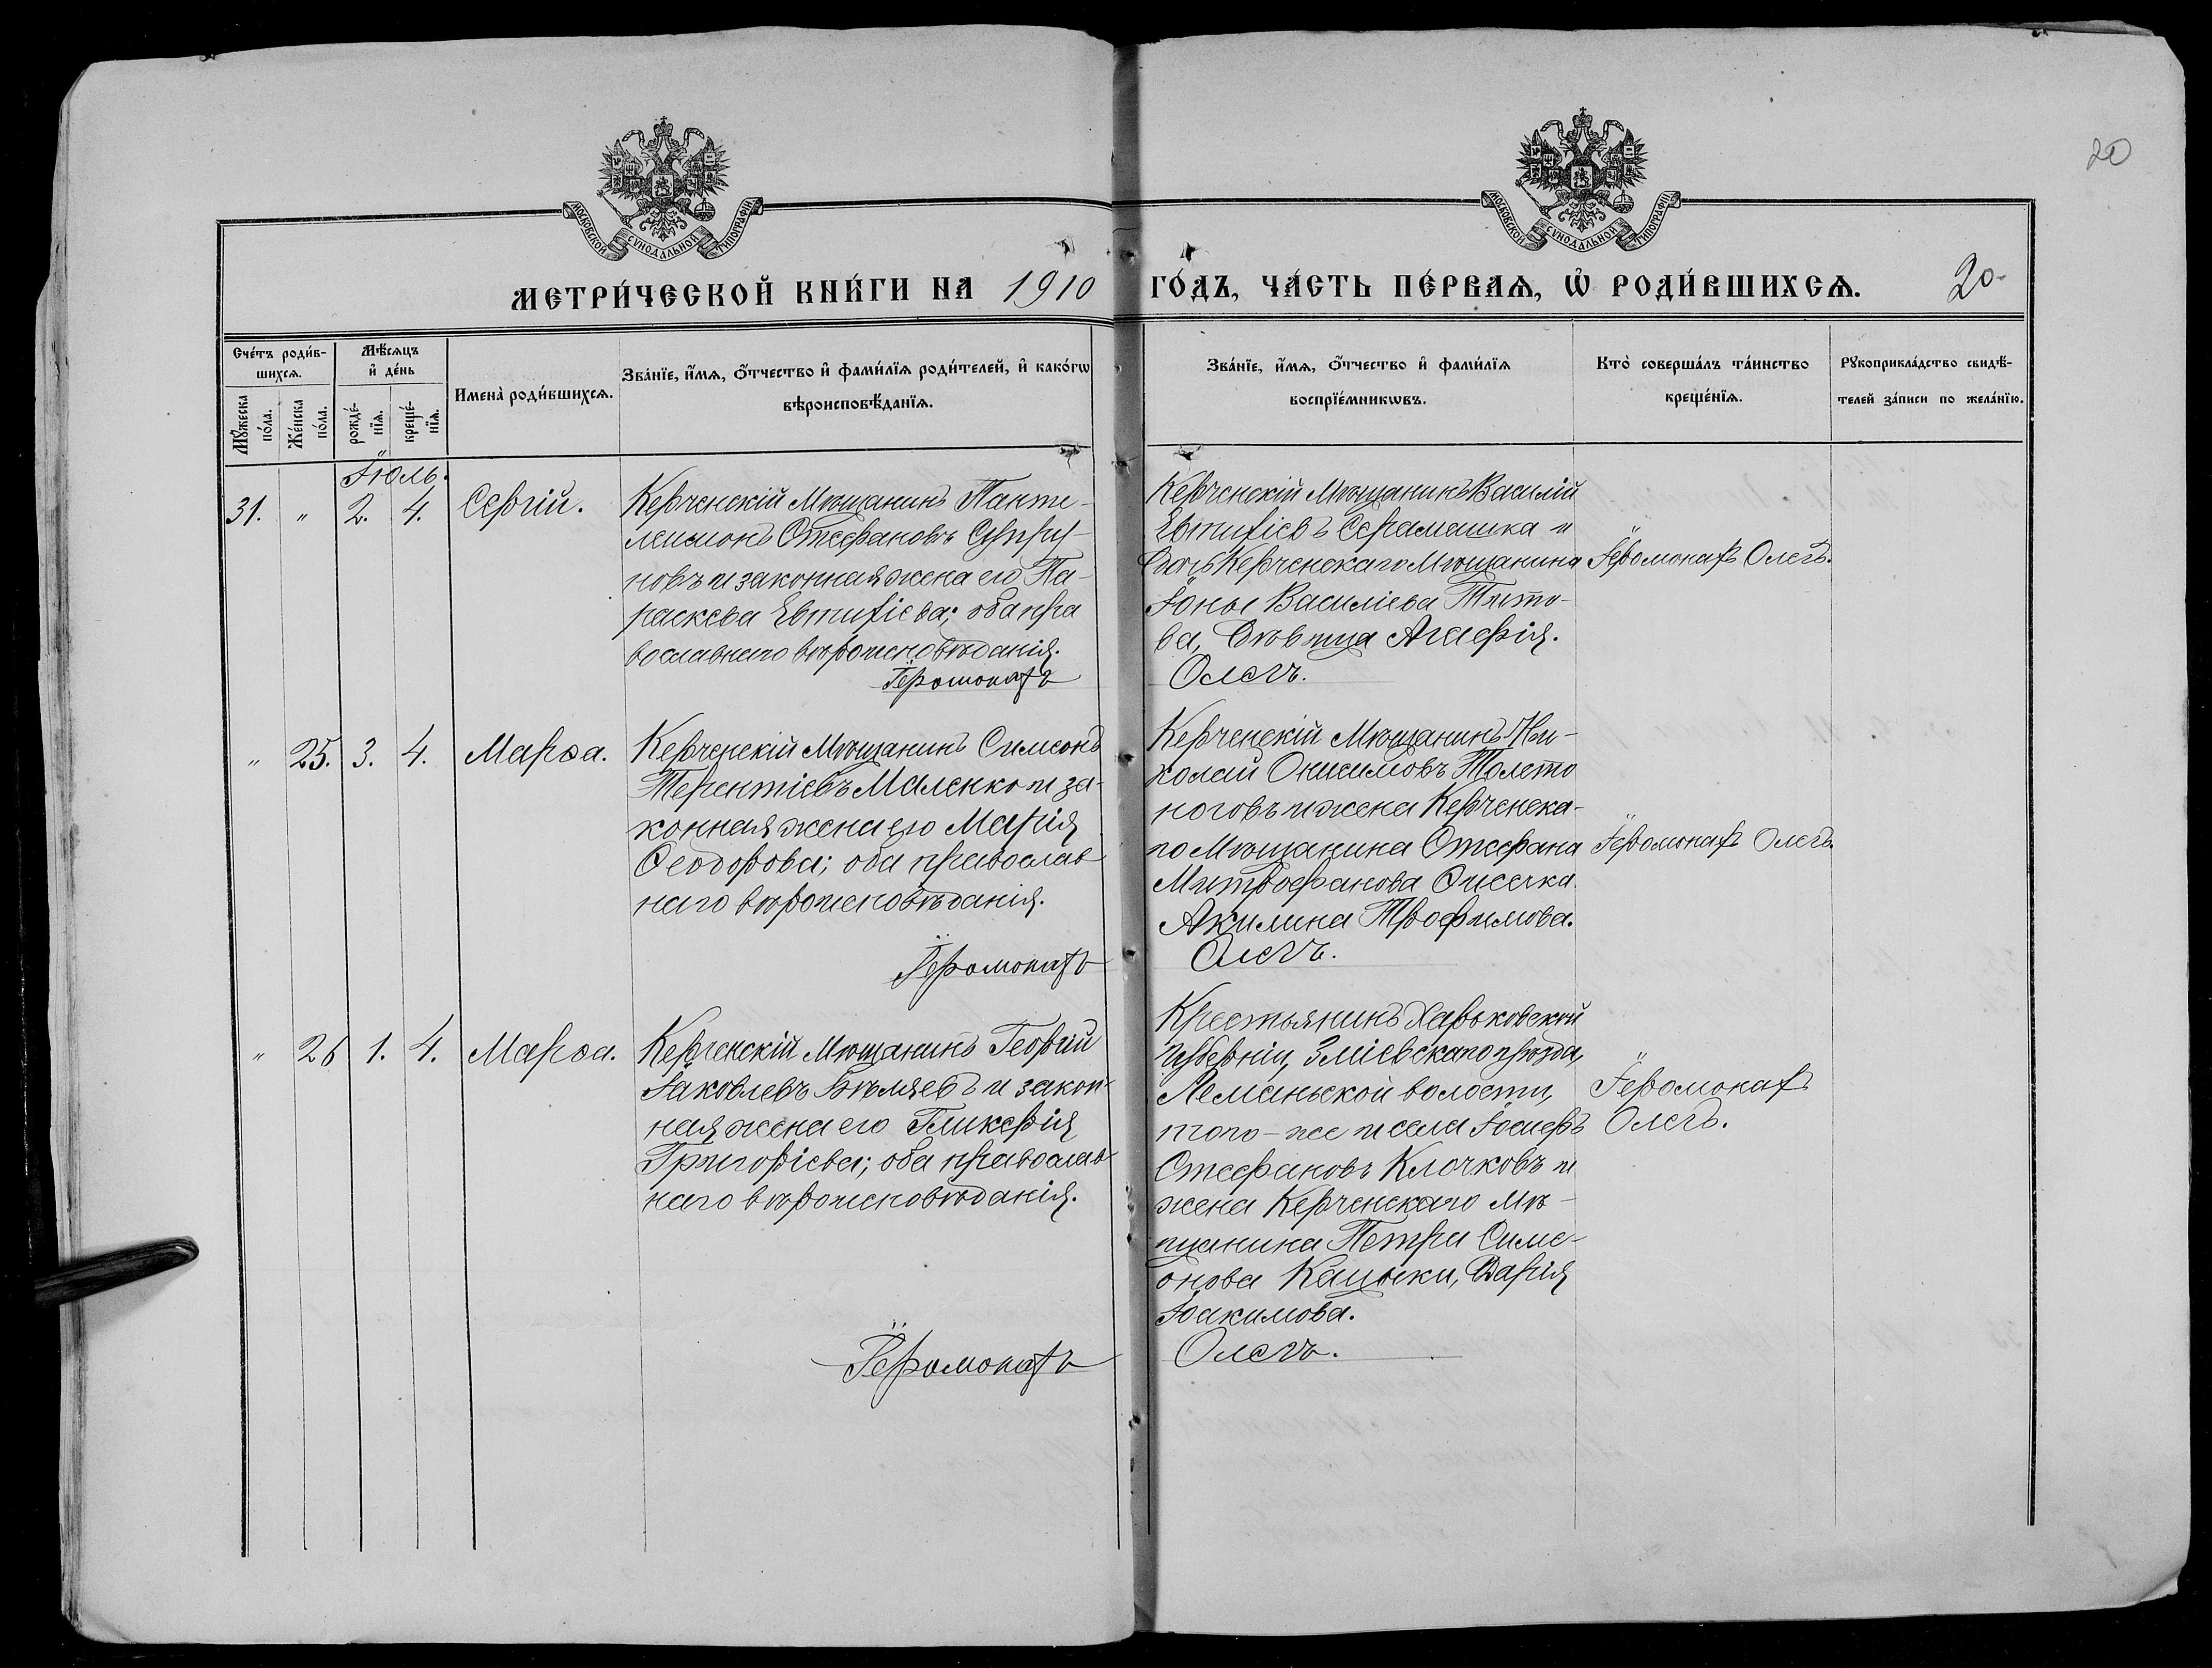 20
МОСКОВСКОЙ СѴНОДАЛЬНОЙ ТИПОГРАФІИ
МОСКОВСКОЙ СѴНОДАЛЬНОЙ ТИПОГРАФІИ
МЕТРИ́ЧЕСКОЙ КНИ́ГИ НА 1910 ГО́ДЪ, ЧА́СТЬ ПЕ́РВАѦ, Ѡ РОДИ́ВШИХСѦ. 20
Сче́тъ роди́в-
шихсѧ.
Мꙋ́жеска по́ла.
Же́нска по́ла.
Мѣ́сѧцъ
и҆ де́нь
рожде́-
нїѧ.
креще́-
нїѧ.
И҆мена̀ роди́вшихсѧ.
Зва́нїе, и҆́мѧ, ѻ҆́тчество и҆ фами́лїѧ роди́телей, и҆ како́гѡ
вѣроисповѣ́данїѧ.
Зва́нїе, и҆́мѧ, ѻ҆́тчество и҆ фами́лїѧ
воспрїе́мникѡвъ.
Кто̀ соверша́лъ та́инство
креще́нїѧ.
Рꙋкоприкла́дство свидѣ́-
телей за́писи по жела́нїю.
Іюль.
31. " 2. 4. Сергій.
Керченскій Мѣщанинъ Панте-
леимонъ Стефановъ Супру-
новъ и законная жена его Па-
раскева Евтихіева; оба пра
вославнаго вѣроисповѣданія.
Іеромонахъ
Керченскій Мѣщанинъ Василій
Евтихіевъ Серамашка и
Дочь Керченскаго Мѣщанина
Іоны Василіева Тито-
ва, Дѣвица Агафія.
Олегъ.
Іеромонахъ Олегъ.
" 25. 3. 4. Марѳа.
Керченскій Мѣщанинъ Симеонъ
Терентіевъ Маленко и за-
конная жена его Марія
Ѳеодорова; оба православ
наго вѣроисповѣданія.
Іеромонахъ
Керченскій Мѣщанинъ Ни-
колай Онисимовъ Толсто
ноговъ и жена Керченска-
го Мѣщанина Стефана
Митрофанова
Акилина Трофимова.
Олегъ.
Іеромонахъ Олегъ.
" 26 1. 4. Марѳа.
Керченскій Мѣщанинъ Георгій
Іаковлевъ Бѣляевъ и закон-
ная жена его Гликерія
Григоріева; оба православ
наго вѣроисповѣданія.
Іеромонахъ
Крестьянинъ Харьковской
губерніи, Зміевскаго уѣзда,
Леманьской волости,
того-же и села Іосифъ
Стефановъ Клочковъ и
жена Керченскаго Мѣ-
щанина Петра Симе-
онова Кацыки, Дарія
Іоакимова.
Олегъ.
Іеромонахъ
Олегъ.